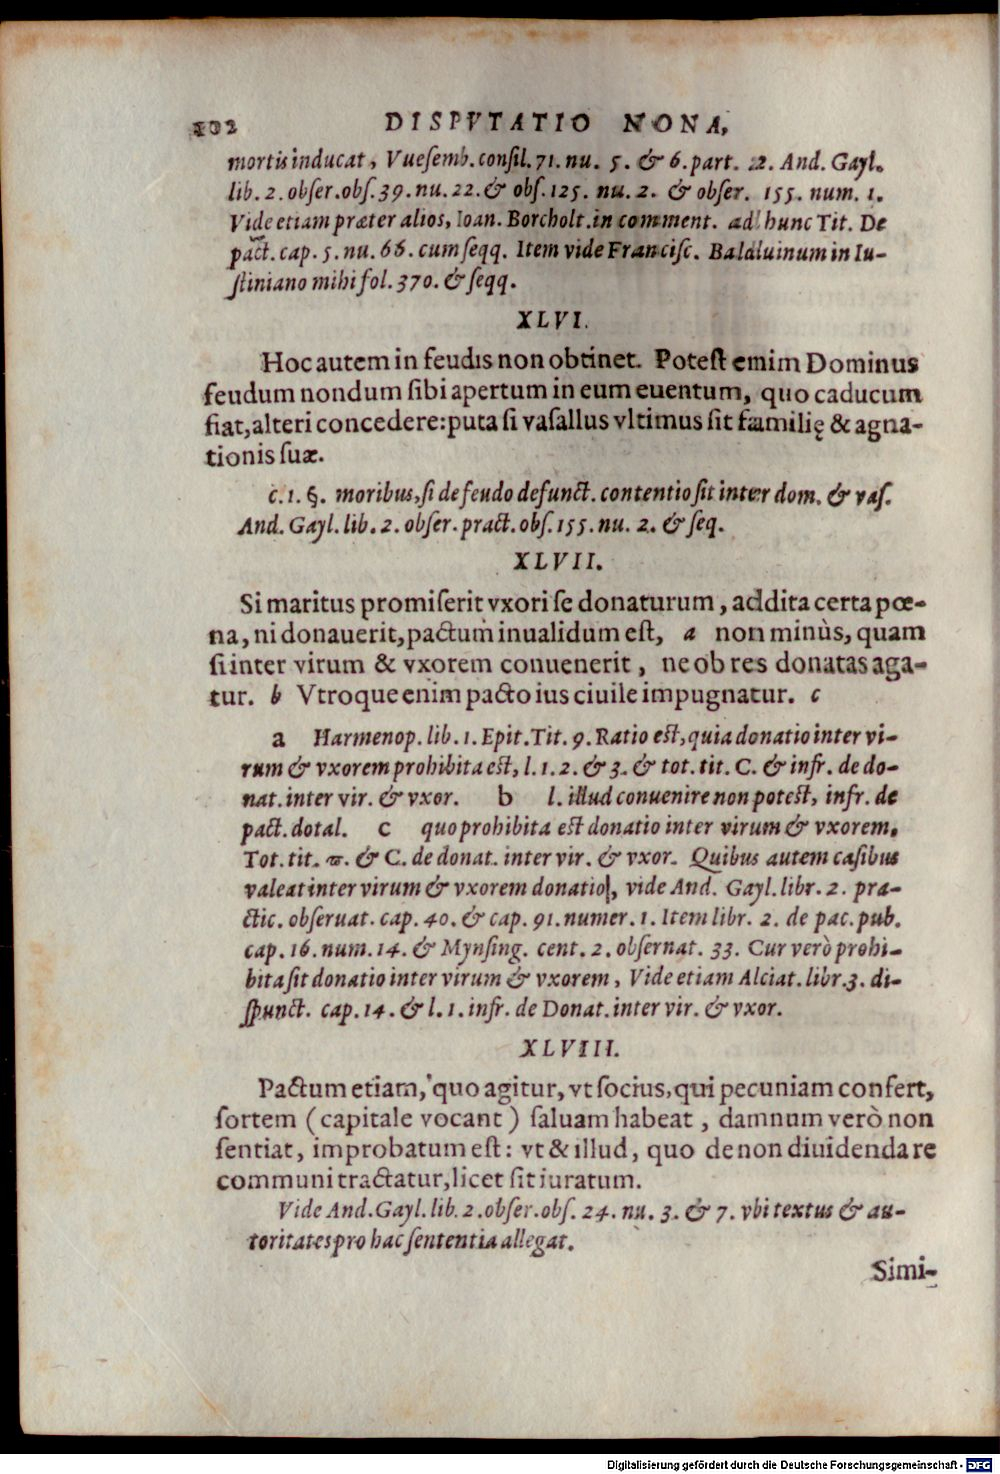 202 DISPVTATIO NONA,
mortis inducat, Vuesemb. consil. 71. nu. 5. & 6. part. 2. And. Gayl.
lib. 2. obser. obs. 39. nu. 22. & obs. 125. nu. 2. & obser. 155. num. 1.
Vide etiam præter alios, Ioan. Borcholt. in comment. ad hunc Tit. De
pact. cap. 5. nu. 66. cum seqq. Item vide Francisc. Balduinum in Iu-
stiniano mihi fol. 370. & seqq.
XLVI.
Hoc autem in feudis non obtinet. Potest enim Dominus
feudum nondum sibi apertum in eum euentum, quo caducum
fiat, alteri concedere: puta si vasallus vltimus sit familię & agna-
tionis suæ.
c. 1. §. moribus, si de feudo defunct. contentio sit inter dom. & vas.
And. Gayl. lib. 2. obser. pract. obs. 155. nu. 2. & seq.
XLVII.
Si maritus promiserit vxori se donaturum, addita certa pœ-
na, ni donauerit, pactum inualidum est, a non minùs, quam
si inter virum & vxorem conuenerit, ne ob res donatas aga-
tur. b Vtroque enim pacto ius ciuile impugnatur. c
a Harmenop. lib. 1. Epit. Tit. 9. Ratio est, quia donatio inter vi-
rum & vxorem prohibita est, l. 1. 2. & 3. & tot. tit. C. & infr. de do-
nat. inter vir. & vxor. b l. illud conuenire non potest, infr. de
pact. dotal. c quo prohibita est donatio inter virum & vxorem.
Tot. tit. ϖ. & C. de donat. inter vir. & vxor. Quibus autem casibus
valeat inter virum & vxorem donatio, vide And. Gayl. libr. 2. pra-
ctic. obseruat. cap. 40. & cap. 91. numer. 1. Item libr. 2. de pac. pub.
cap. 16. num. 14. & Mynsing. cent. 2. obsernat. 33. Cur verò prohi-
bita sit donatio inter virum & vxorem, Vide etiam Alciat. libr. 3. di-
spunct. cap. 14. & l. 1. infr. de Donat. inter vir. & vxor.
XLVIII.
Pactum etiam, quo agitur, vt socius, qui pecuniam confert,
sortem (capitale vocant) saluam habeat, damnum verò non
sentiat, improbatum est: vt & illud, quo de non diuidenda re
communi tractatur, licet sit iuratum.
Vide And. Gayl. lib. 2. obser. obs. 24. nu. 3. & 7. vbi textus & au-
toritates pro hac sententia allegat.
Simi-
Digitalisierung gefördert durch die Deutsche Forschungsgemeinschaft - DFG